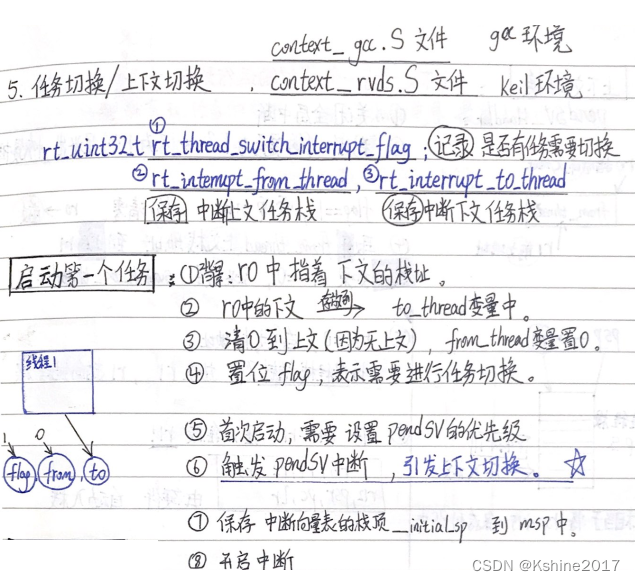 context_gcc.S 文件 gcc 环境
5. 任务切换/上下文切换 , context_rvds.S 文件 keil 环境
①
rt_uint32_t rt_thread_switch_interrupt_flag ; 记录 是否有任务需要切换
② rt_interrupt_from_thread , ③ rt_interrupt_to_thread
保存 中断上文任务栈 保存 中断下文任务栈
启动第一个任务 : ① 背景: r0 中 指着 下文的栈址。
② r0中的下文 存放到 to_thread变量中。
③ 清0 到 上文 (因为无上文) , from_thread变量置0。
④ 置位 flag , 表示需要进行任务切换。
线程1
⑤ 首次启动, 需要 设置 pendSV的优先级
1 0
flag , from , to
⑥ 触发 pendSV 中断 , 引发上下文切换。 ☆
⑦ 保存 中断向量表的栈顶 __initial_sp 到 msp 中。
⑧ 开启 中断
CSDN @Kshine2017